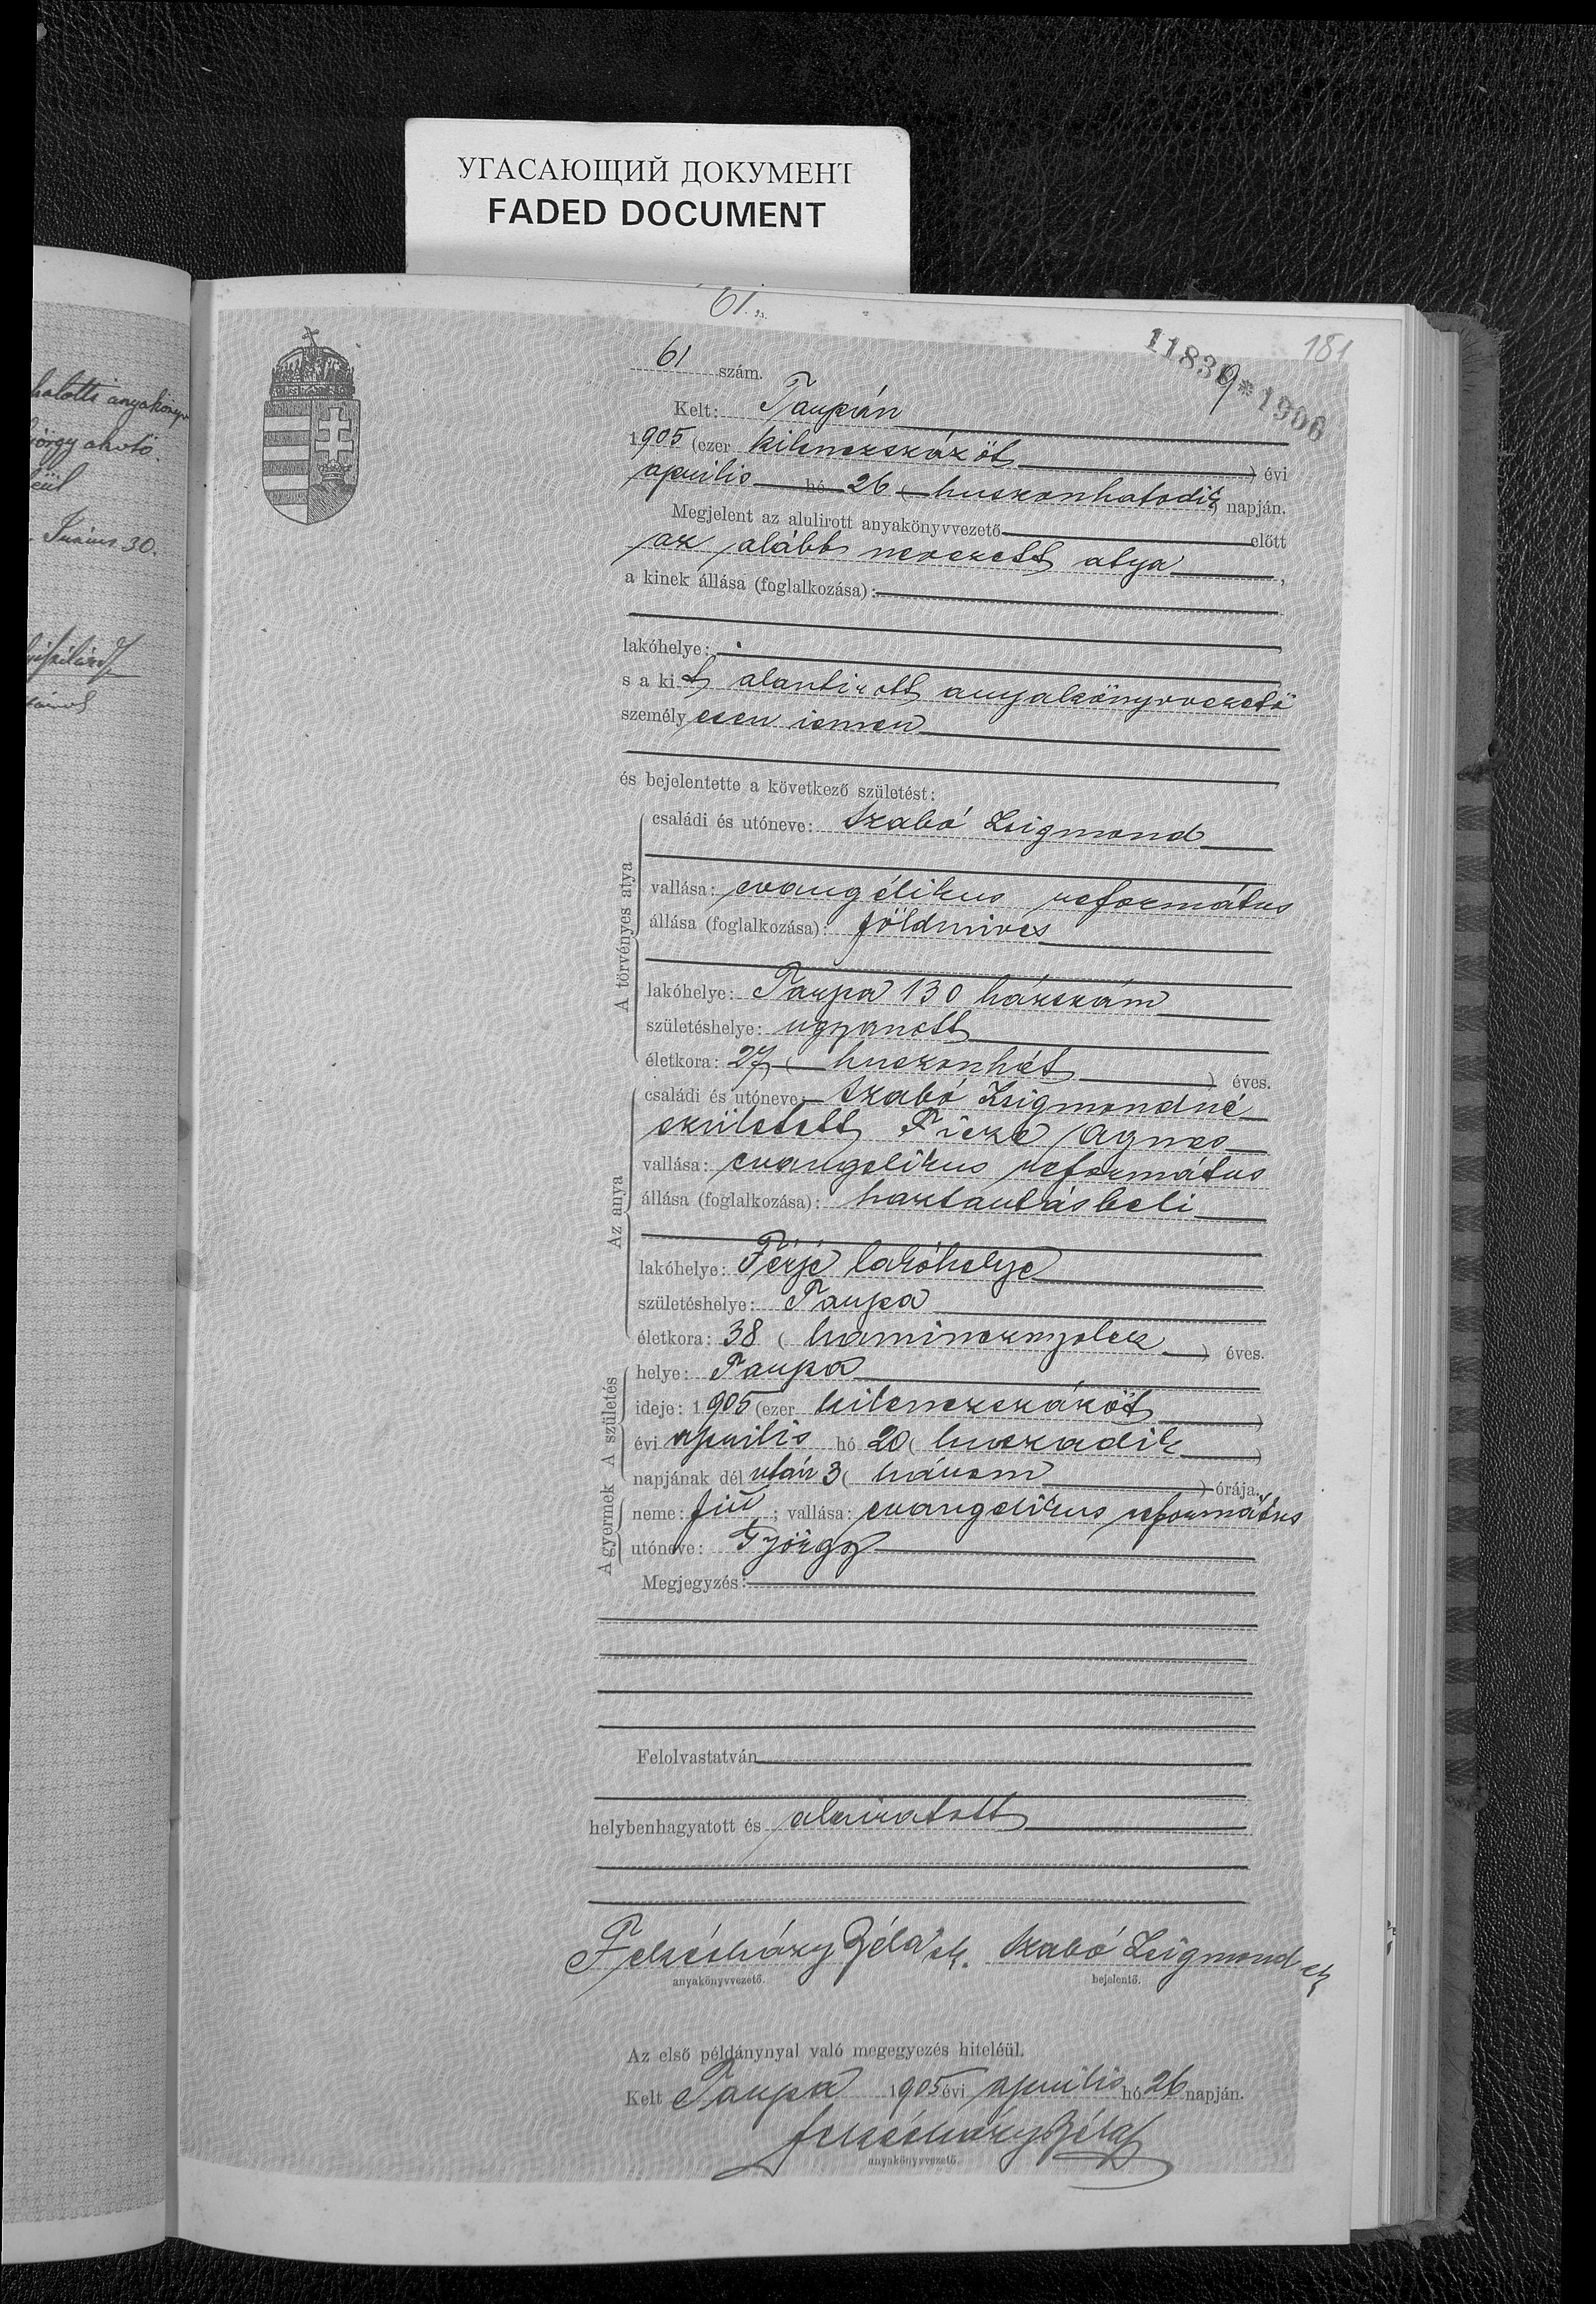 УГАСАЮЩИЙ ДОКУМЕНТ
FADED DOCUMENT
halotti anyakönyv
György
Junius 30.
61.
181
11839*1906
61 szám.
Kelt: Tarpán
1905 (ezer kilenczszáz öt) évi
április hó 26 (huszonhatodik) napján.
Megjelent az alulirott anyakönyvvezető előtt
az alább nevezett atya,
a kinek állása (foglalkozása):
lakóhelye:
s a kit alantirott anyakönyvvezető
személyesen ismer
és bejelentette a következő születést:
A törvényes atya
családi és utóneve: Szabó Zsigmond
vallása: evangélikus református
állása (foglalkozása): földmives
lakóhelye: Tarpa 130 házszám
születéshelye: ugyanott
életkora: 27 (huszonhét) éves.
Az anya
családi és utóneve: Szabó Zsigmondné
született Ficze Ágnes
vallása: evangelikus református
állása (foglalkozása): háztartásbeli
lakóhelye: Férje lakóhelye
születéshelye: Tarpa
életkora: 38 (harmincznyolcz) éves.
A születés
helye: Tarpa
ideje: 1905 (ezer kilenczszázöt)
évi április hó 20 (huszadik)
napjának dél után 3 (három) órája.
A gyermek
neme: fiú; vallása: evangelikus református
utóneve: György
Megjegyzés:
Felolvastatván
helybenhagyatott és aláiratott
Béla sk. Szabó Zsigmond sk
anyakönyvvezető. bejelentő.
Az első példánynyal való megegyezés hiteléül.
Kelt Tarpa 1905 évi április hó 26 napján.
Béla
anyakönyvvezető